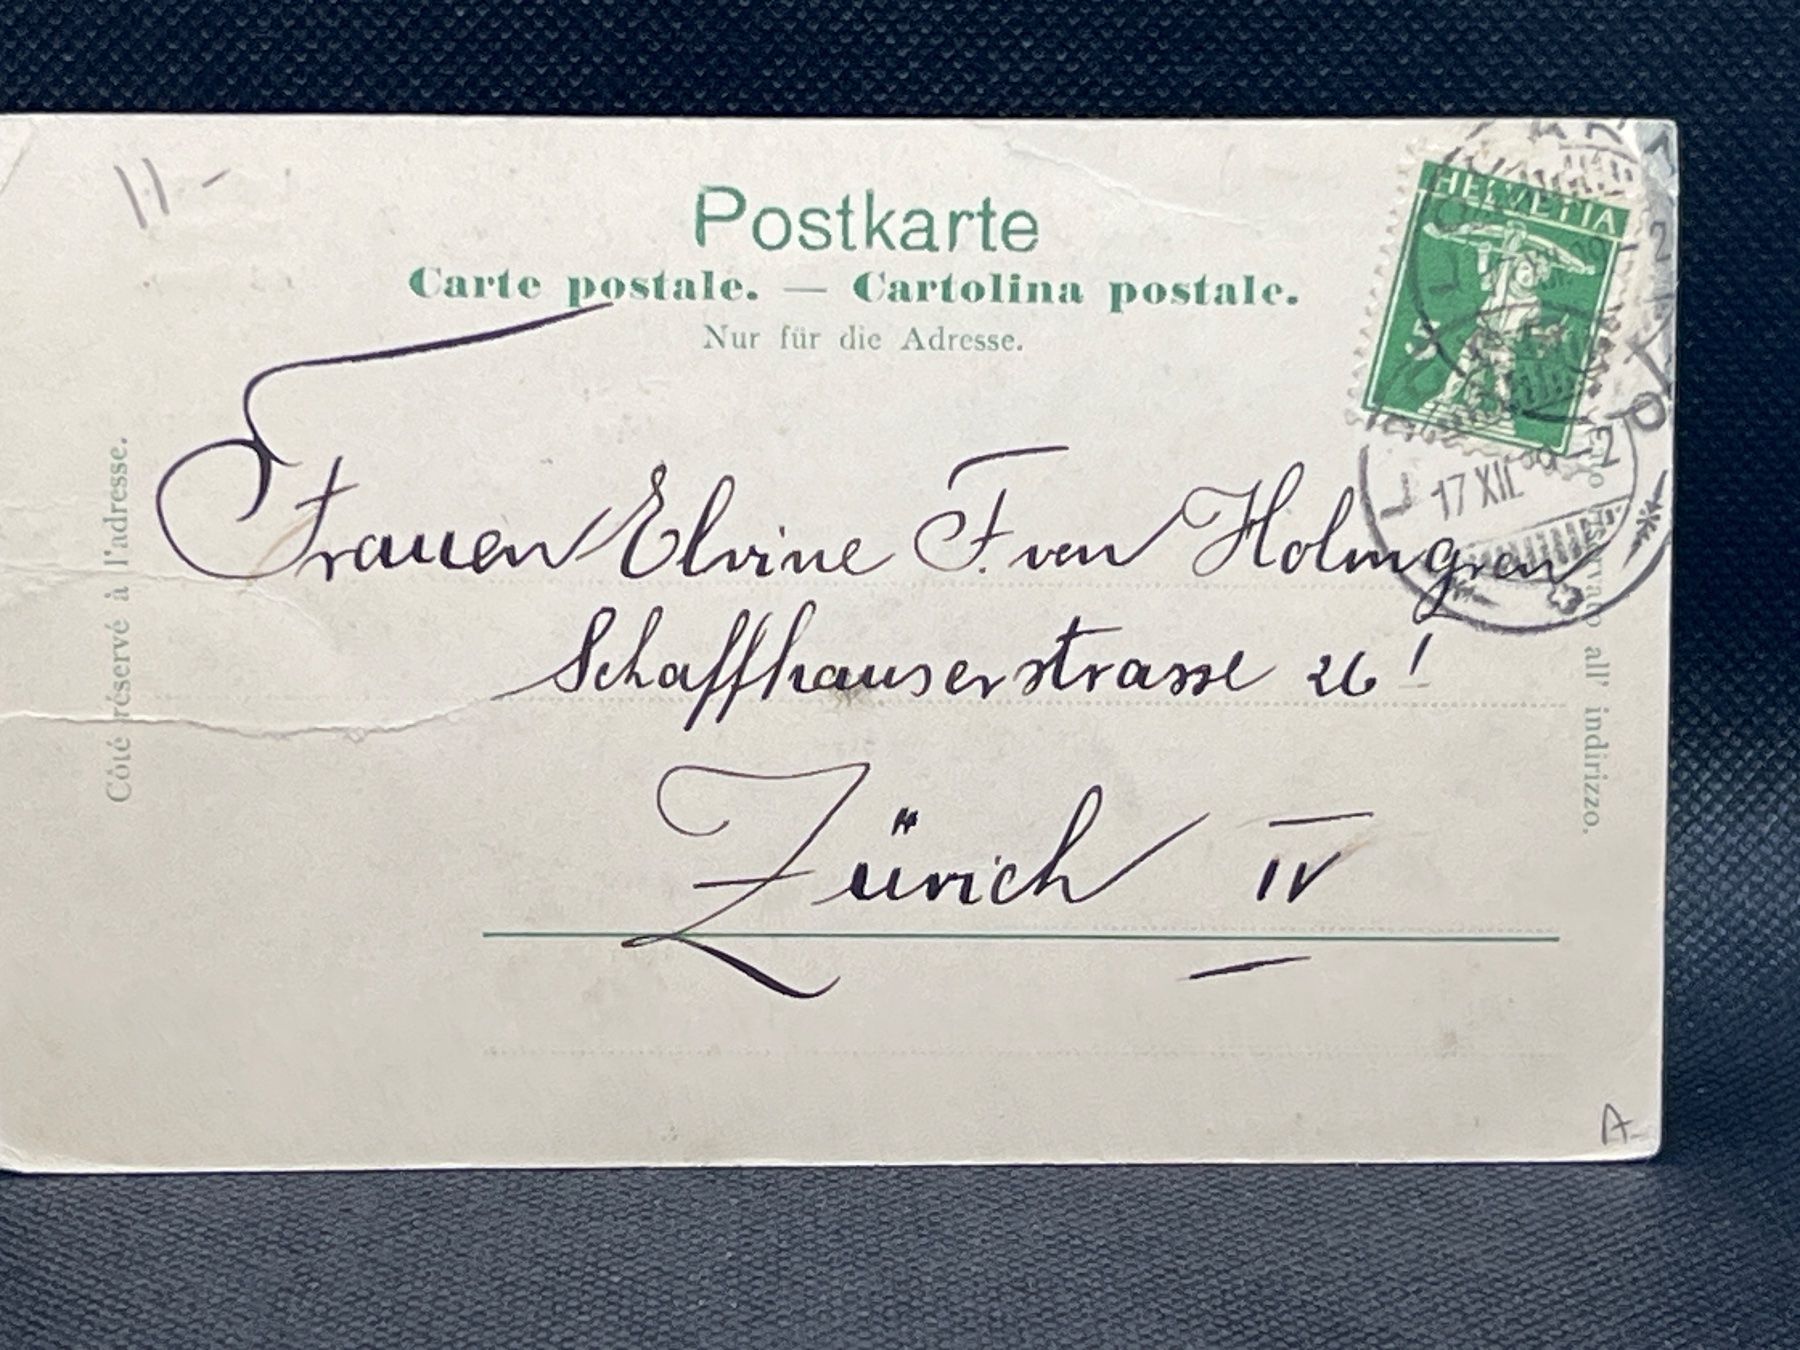 11-
Postkarte
Carte postale. — Cartolina postale.
Nur für die Adresse.
HELVETIA
5
17 XII
Frauen Elvine F. von Holmgren
Schaffhauserstrasse 26!
Zürich IV
Côté réservé à l'adresse.
all' indirizzo.
A-